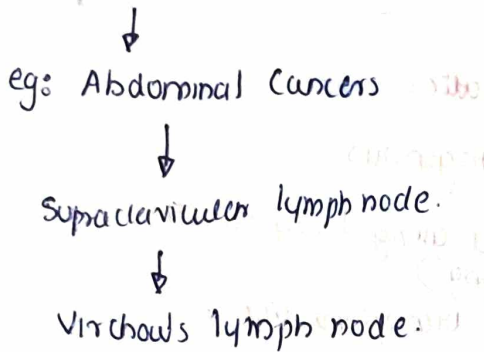 ↓
eg: Abdominal Cancers
↓
Supraclavicular lymph node.
↓
Virchow's lymph node.